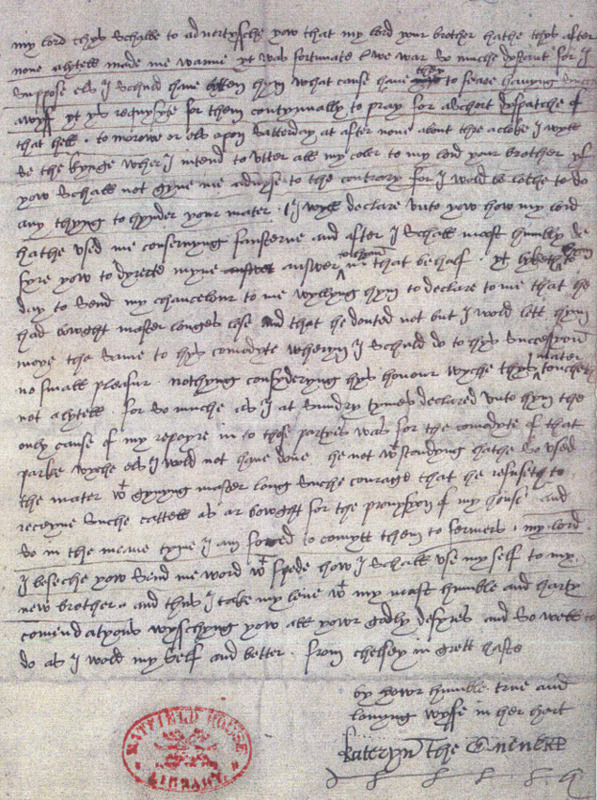 my lord thys schalbe to advertysche yow that my lord your brother hathe thys after
none a lytell made me warme yt was fortunate we war so muche dystant for I
suppose els I schuld have bitten hym what cause have they to feare havyng suche
a wyff yt ys requysyte for them contynually to pray for a schort dyspatche of
that hell. to morowe or els apon satterday at after none about thre a cloke I wyll
se the kynge wher I intend to utter all my coler to my lord your brother yf
yow schall not gyue me aduyse to the contrary for I wold be lothe to do
any thyng to hynder your mater. I wyll declare unto yow how my lord
hathe used me consernyng fausterne and after I schall most humbly de
syre yow to dyrecte myne answer to hym in that behalf. yt lyked hym to
day to send my chanceler to me wyllyng hym to declare to me that he
had bowght master longes lese and that he douted not but I wold lett hym
inioye the same to hys comodyte wheryn I schuld do to hys succession
no small pleasur. nothyng consyderyng hys honour wyche thys mater toucheth
not a lytell. for so muche as I at sundry tymes declared unto hym the
only cause of my repayre in to those partyes was for the comodyte of that
parke wyche els I wold not have done. he not wtstandyng hathe so used
the mater wt gyuyng master long suche courage that he refuseth to
receyve suche cattell as ar bowght for the provysyon of my house and
so in the meane tyme I am forced to comytt them to farmers. my lord.
I beseche yow send me word wt spede how I schall use my self to my
new brother. and thus I take my leve wt my most humble and harty
comendatyons wysschyng yow all yowr godly desyres and so well to
do as I wold my self and better. from chelsey in grett hast
by yowr humble true and
lovyng wyffe in her hart
Kateryn the Quene KP
HATFIELD HOUSE
LIBRARY